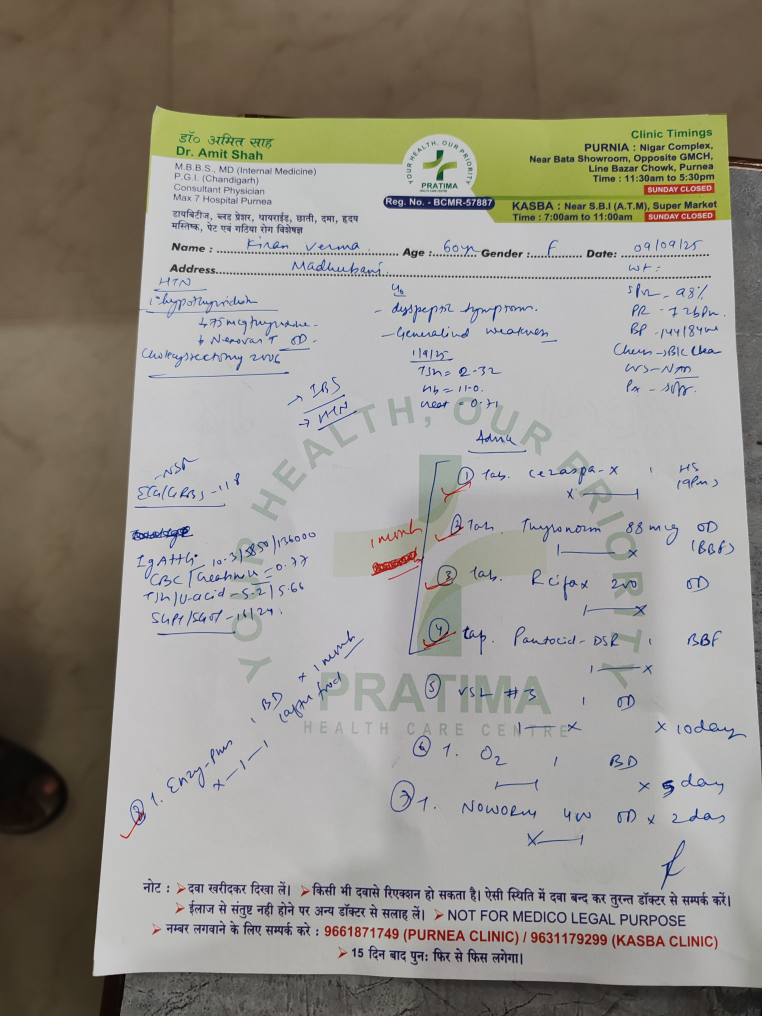 डॉ० अमित साह
Dr. Amit Shah
M.B.B.S., MD (Internal Medicine)
P.G.I. (Chandigarh)
Consultant Physician
Max 7 Hospital Purnea
डायबिटीज, ब्लड प्रेशर, थायराईड, छाती, दमा, हृदय
मस्तिष्क, पेट एवं गठिया रोग विशेषज्ञ
YOUR HEALTH, OUR PRIORITY
PRATIMA
HEALTH CARE CENTRE
Reg. No. - BCMR-57887
Clinic Timings
PURNIA : Nigar Complex,
Near Bata Showroom, Opposite GMCH,
Line Bazar Chowk, Purnea
Time : 11:30am to 5:30pm
SUNDAY CLOSED
KASBA : Near S.B.I (A.T.M), Super Market
Time : 7:00am to 11:00am SUNDAY CLOSED
Name : Kiran Verma Age : 60yr Gender : F Date: 09/09/25
Address Madhubani
wt:
HTN
hypothyroidism
75 mcg thyroxine
OD
Cholecystectomy 2006
dyspeptic symptoms
- Generalised weakness
1/9/25
TSH = 2.32
Hb = 11.0
creat = 0.71
SpO2 - 98%
PR - 72bpm
BP - 144/84
Chest - B/L Clear
PA - soft
→ IBS
→ HTN
Advice
1 month
① Tab. x 1 HS
(9Pm)
x 1
② Tab. Thyronorm 88 mcg OD
(BBF)
1 x
③ Tab. Rcifax 200 OD
1 x
④ Cap. Pantocid-DSR 1 BBF
1 x
⑤ VSL #3 1 OD
1 x x 10 days
⑥ T. O2 1 BD
x 5 day
⑦ T. Noworm 400 OD x 2 days
x 1
- NSR
118
CBC 10.3/5850/136000
Creatinine = 0.77
TSH/U-acid - 5.2/5.66
SGPT/SGOT - 16/24
⑧ T. Enzy-Plus 1 BD x 1 month
x - 1 - 1 (after food)
YOUR HEALTH, OUR PRIORITY
PRATIMA
HEALTH CARE CENTRE
नोट : दवा खरीदकर दिखा लें। किसी भी दवासे रिएक्शन हो सकता है। ऐसी स्थिति में दवा बन्द कर तुरन्त डॉक्टर से सम्पर्क करें।
ईलाज से संतुष्ट नही होने पर अन्य डॉक्टर से सलाह लें। NOT FOR MEDICO LEGAL PURPOSE
नम्बर लगवाने के लिए सम्पर्क करे : 9661871749 (PURNEA CLINIC) / 9631179299 (KASBA CLINIC)
15 दिन बाद पुनः फिर से फिस लगेगा।